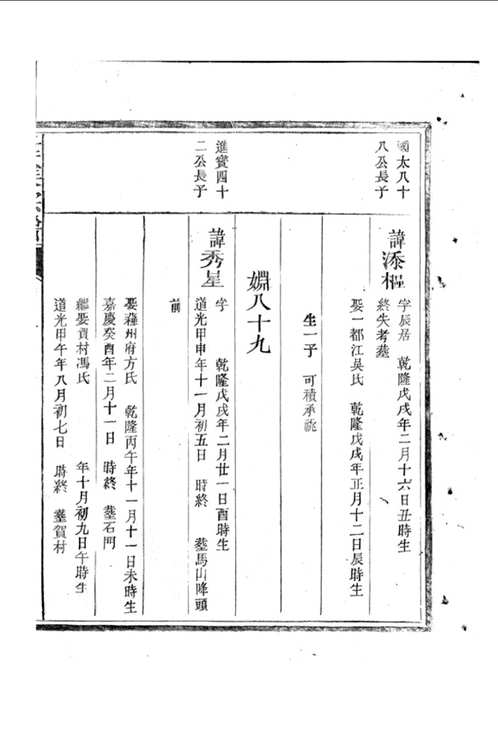 國太八十
八公長子
諱添樞
字辰居 乾隆戊戌年二月十六日丑時生
終失考塟
娶一都江吳氏 乾隆戊戌年正月十二日辰時生
生一子 可積承祧
嫺八十九
進寶四十
二公長子
諱秀星
字 乾隆戊戌年二月廿一日酉時生
道光甲申年十一月初五日 時終 塟馬山降頭
前
娶蘓州府方氏 乾隆丙午年十一月十一日未時生
嘉慶癸酉年二月十一日 時終 塟石門
繼娶貢村馮氏 年十月初九日午時生
道光甲午年八月初七日 時終 塟賀村